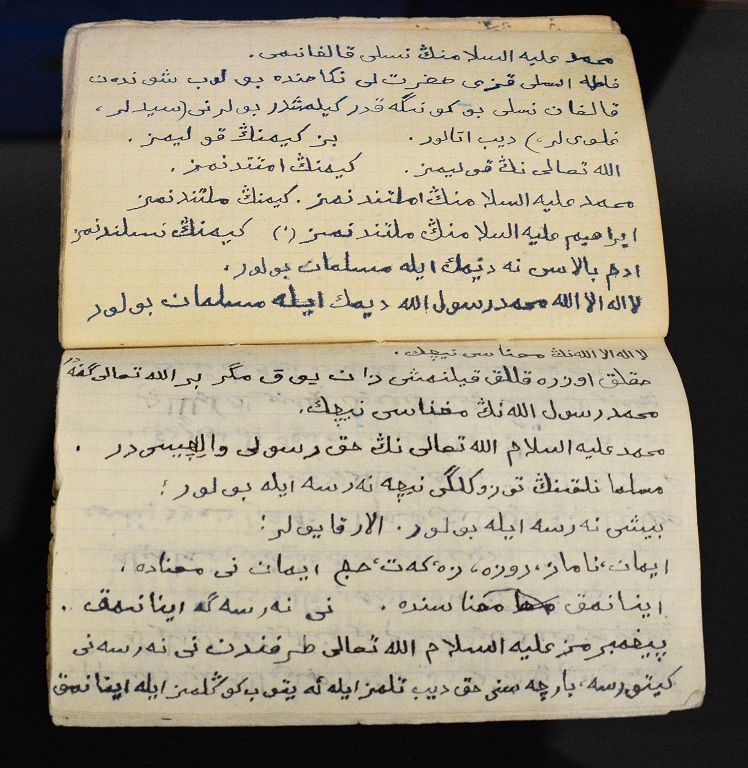 محمد علیه السلامننڭ نسلی قالغانمی.
فاطمه اسملی قزی حضرت لی نكاحنده بو لوب شوندن
قالغان نسلی بو كو نگه قدر كیلمشدر بولرنی (سیدلر،
علوی لر،) دیب اتالور. بز كیمنڭ قو لیمز.
الله تعالی نڭ قو لیمز. كیمنڭ امتندنمز.
محمد علیه السلا منڭ امتندنمز. كیمنڭ ملتندنمز
ابراهیم علیه السلا منڭ ملتندنمز (٠) كیمنڭ نسلندنمز
ادم بالاسی نه دیمك ایله مسلمان بولور.
لا اله الا الله محمد رسول الله دیمك ایله مسلمان بولور
لا اله الا الله نڭ معنا سی نیچك.
حقلق اوزره قللق قیلنمش ذات یوق مگر بر الله تعالی گنه در
محمد رسول الله نڭ مغناسی نیچك.
محمد علیه السلام الله تعالی نڭ حق رسولی وایلچیسی در .
مسلما نلقننڭ توزوكلگی نیچه نه رسه ایله بو لور؛
بیش نه رسه ایله بولور. الار قایو لر؛
ایمان، ناماز، روزه، زه كه ت، حج ایمان نی معناده؛
اینانمق معنا سنده . نی نه رسه گه اینانمق .
پیغمبرمز علیه السلام الله تعالی طرفندن نی نه رسه نی
كیتورسه، بارچه سنی حق دیب تلمز ایله ئه یتوب كو ڭلمز ایله اینانمق